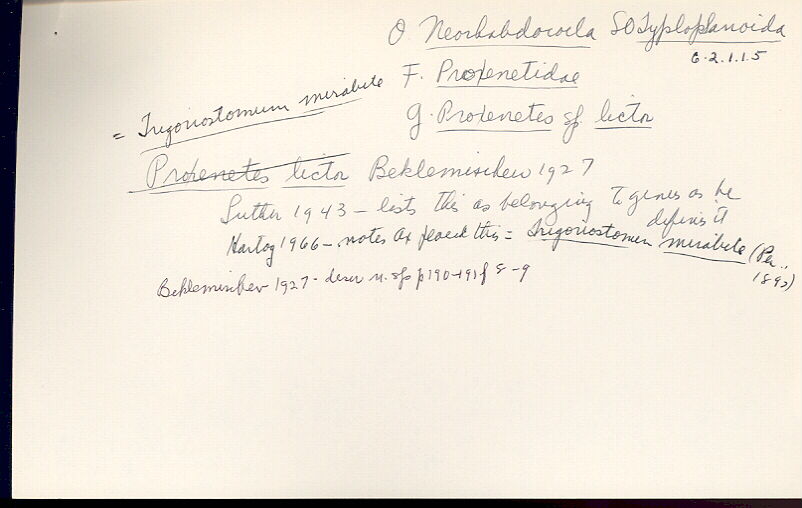 O. Neorhabdocoela SO Typloplanoida
6.2.1.1.5
F. Proxenetidae
= Trigoriostomum mirabile
g. Proxenetes sp. lictor
Proxenetes lictor Beklemischev 1927
Luther 1943 - lists this as belonging to genus as he
defines it
Hartog 1966 - notes Ax placed this = Trigoriostomum mirabile (Per.,
1892)
Beklemischev 1927 - descr n. sp p190-191 f 8-9